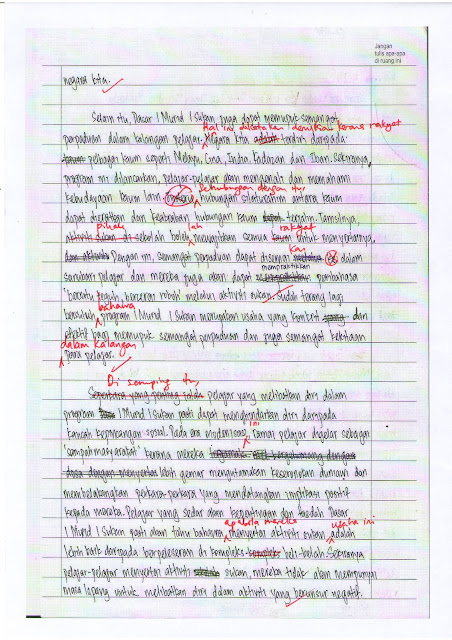 Jangan
tulis apa-apa
di ruang ini
negara kita.
Selain itu, Dasar 1 Murid 1 Sukan juga dapat memupuk semangat
perpaduan dalam kalangan pelajar. Hal ini dikatakan demikian kerana rakyat
Negara kita terdiri daripada
pelbagai kaum seperti Melayu, Cina, India, Kadazan dan Iban. Sekiranya,
program ini dilancarkan, pelajar-pelajar akan mengenali dan memahami
kebudayaan kaum lain. Sehubungan dengan itu, hubungan silaturahim antara kaum
dapat dieratkan dan keakraban hubungan kaum dapat terjalin. Tamsilnya,
aktiviti sukan di pihak sekolah bolehlah mewajibkan semua kaum rakyat untuk menyertainya.
dan aktiviti Dengan ini, semangat perpaduan dapat disemaikan dalam
sanubari pelajar dan mereka juga akan dapat mempraktikkan peribahasa
'bersatu teguh, bercerai roboh' melalui aktiviti sukan. Sudah terang lagi
bersuluh bahawa program 1 Murid 1 Sukan merupakan usaha yang konkrit dan
efektif bagi memupuk semangat perpaduan dan juga semangat kekitaan
dalam kalangan para pelajar.
Di samping itu,
Seperkara yang penting pelajar yang melibatkan diri dalam
program 1 Murid 1 Sukan pasti dapat menghindarkan diri daripada
kancah kepincangan sosial. Pada era modenisasi ini, ramai pelajar digelar sebagai
'sampah masyarakat' kerana mereka
lebih gemar mengutamakan keseronokan duniawi dan
membelakangkan perkara-perkara yang mendatangkan implikasi positif
kepada mereka. Pelajar yang sedar akan kepentingan dan faedah Dasar
1 Murid 1 Sukan pasti akan tahu bahawa apabila mereka menyertai aktiviti sukan, usaha ini adalah
lebih baik daripada berpeleseran di kompleks beli-belah. Sekiranya
pelajar-pelajar menyertai aktiviti sukan, mereka tidak akan mempunyai
masa lapang untuk melibatkan diri dalam aktiviti yang berunsur negatif.